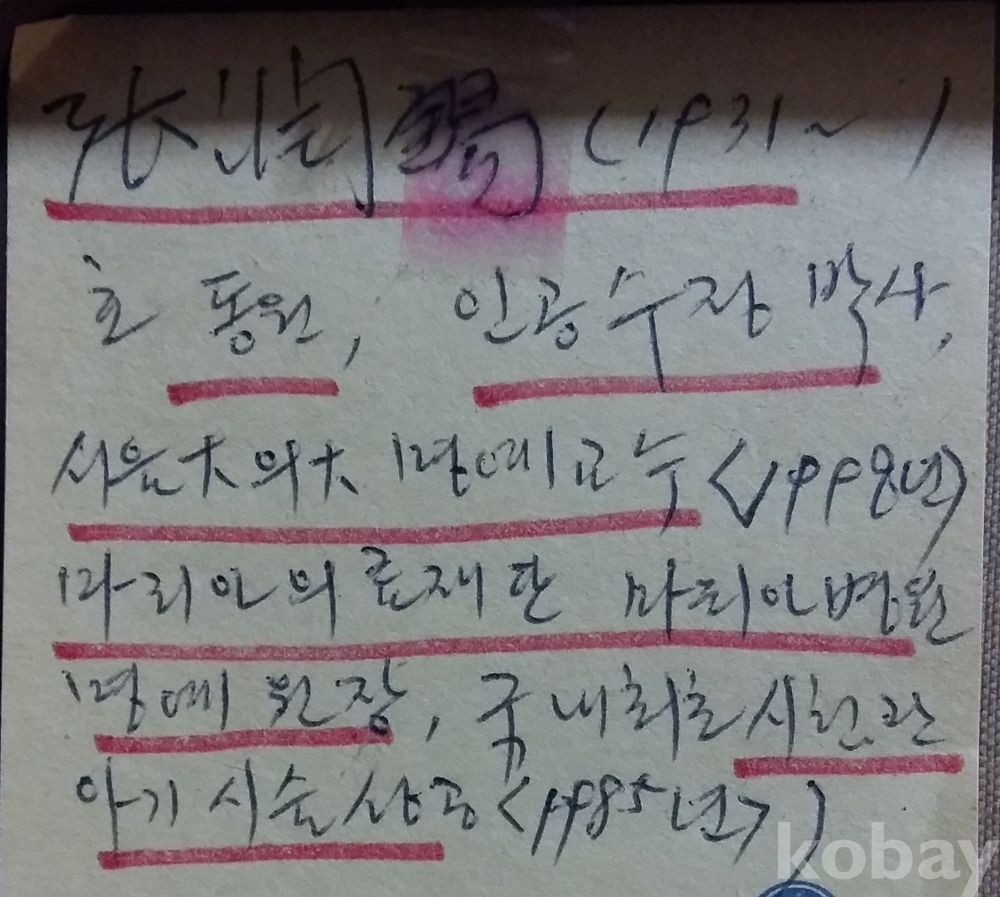 張潤錫 (1931~ )
호 동원, 인공수정 박사,
서울大의大 명예교수 <1998년>
마리아의료재단 마리아병원
명예원장, 국내최초 시험관
아기시술 성공 <1985년> )
kobay